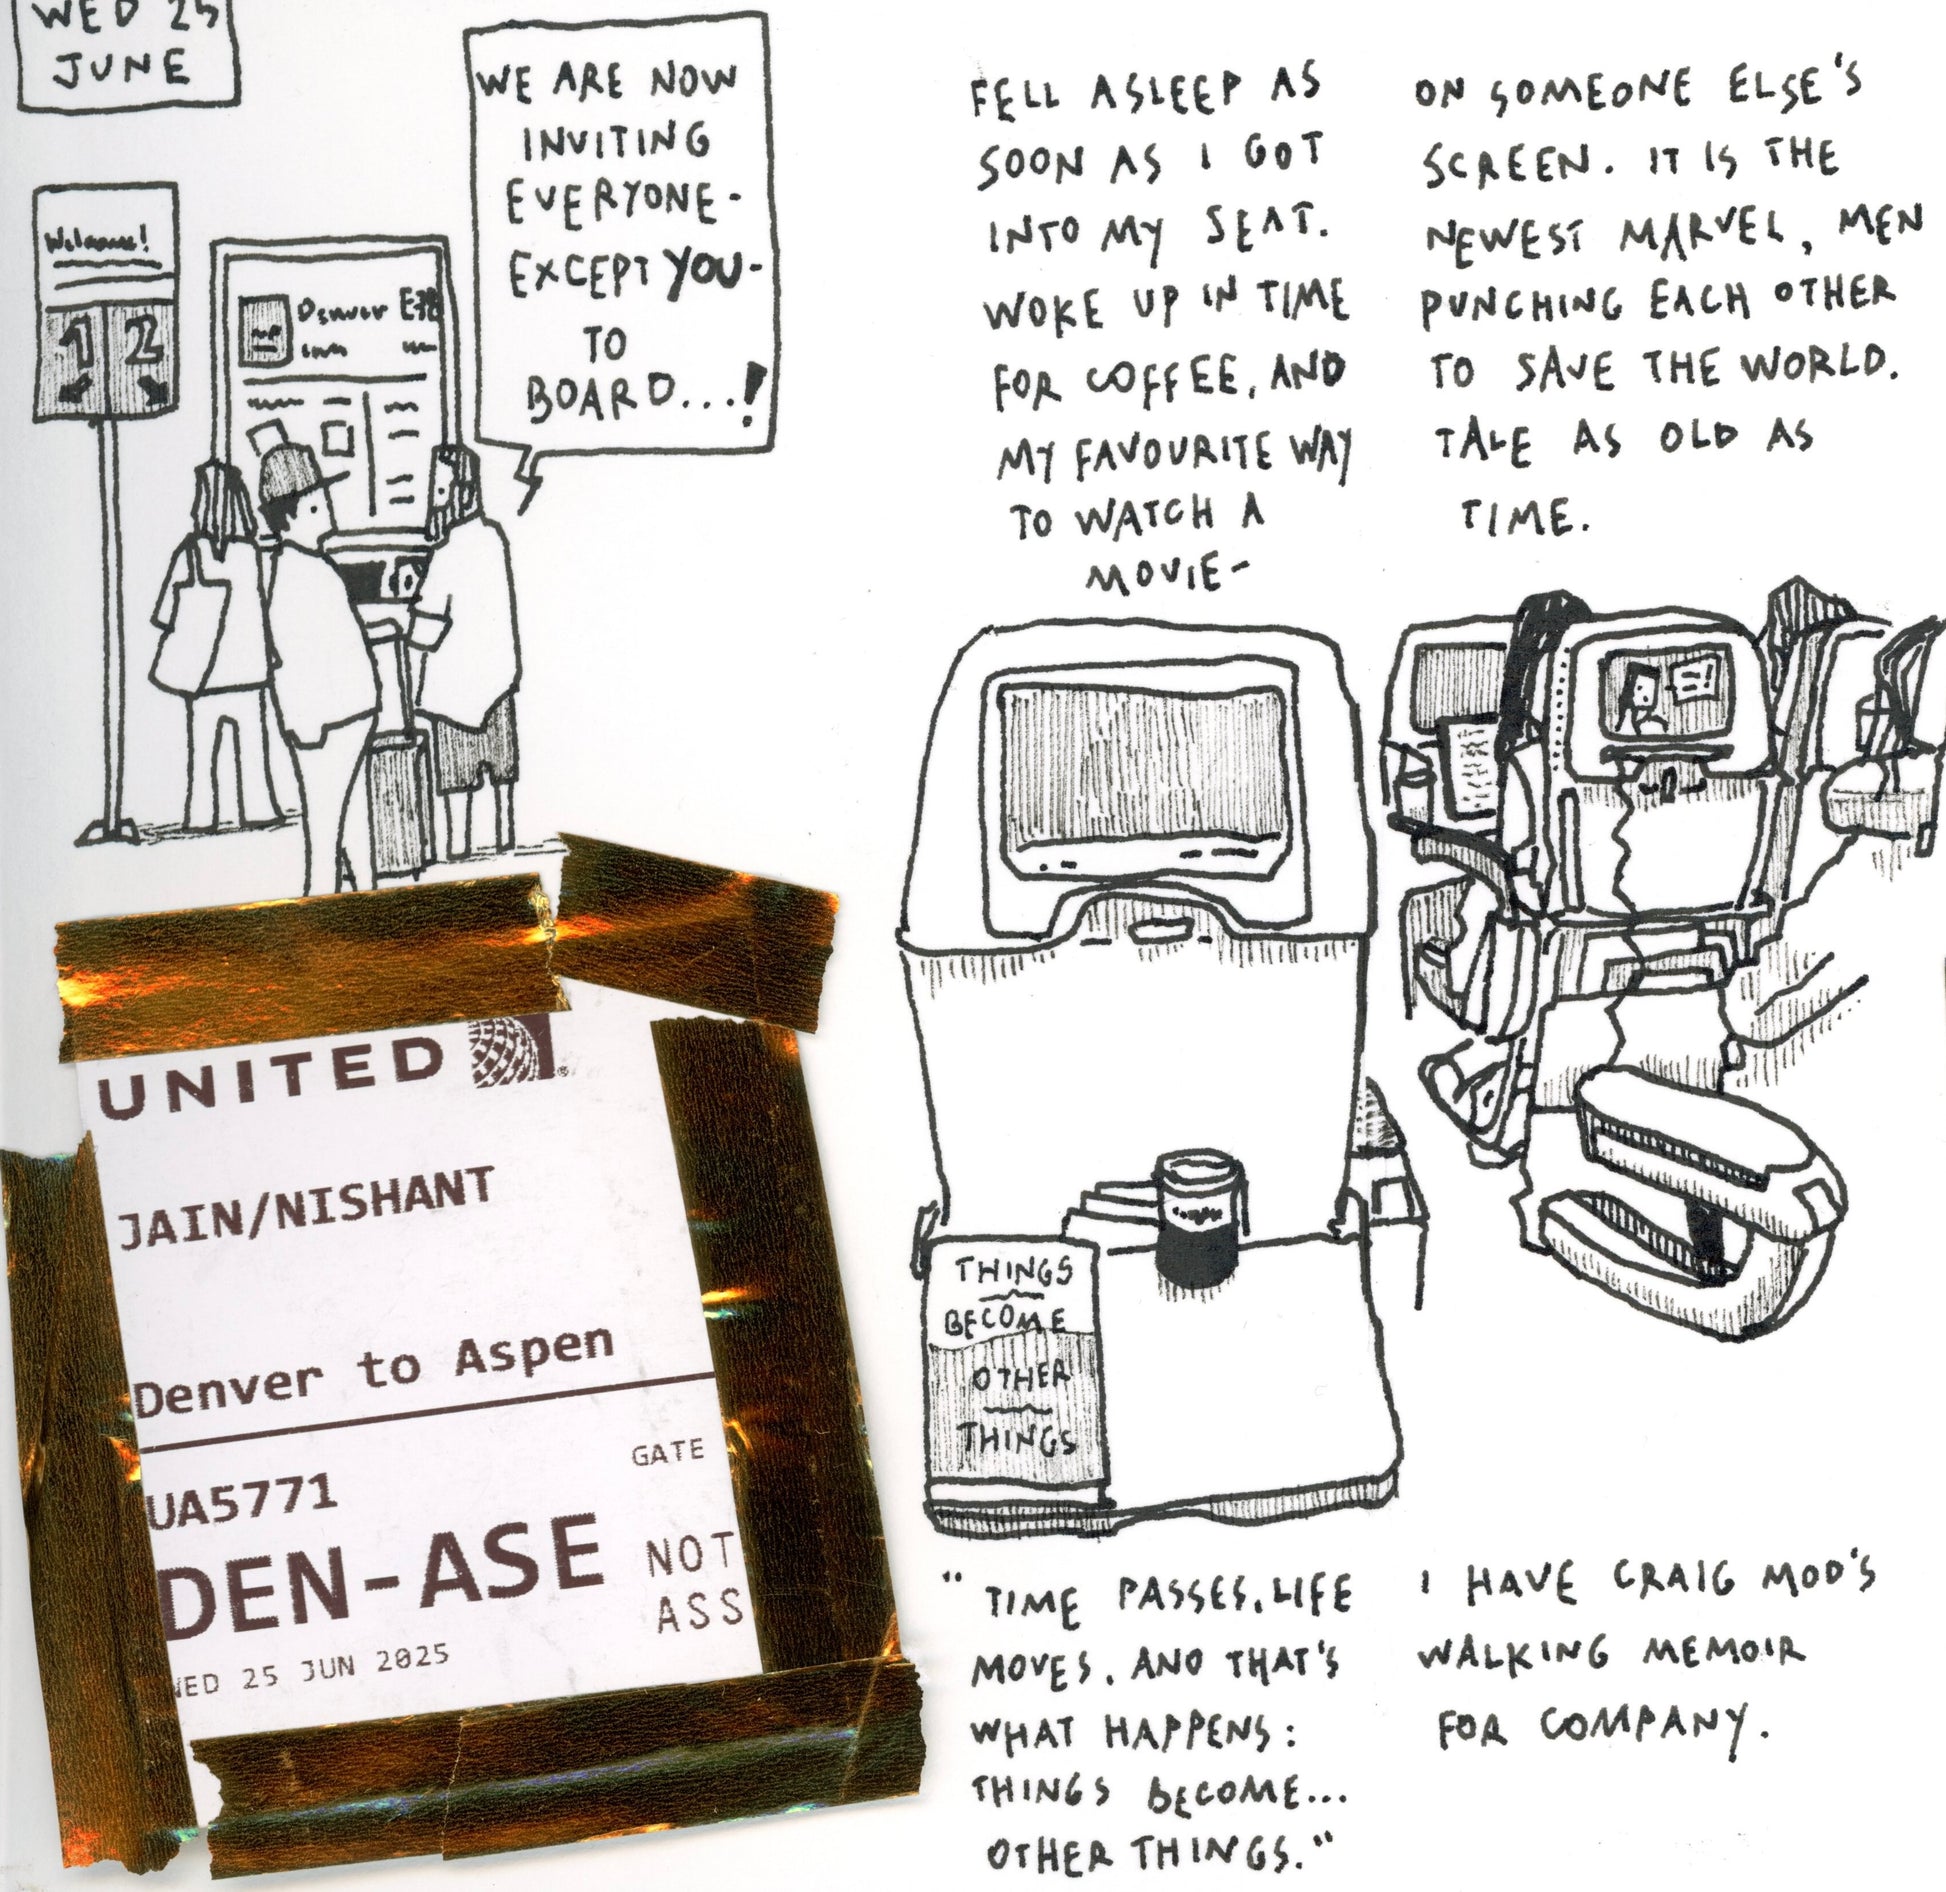 WED 25
JUNE
WE ARE NOW
INVITING
EVERYONE-
EXCEPT YOU-
TO
BOARD...!
Welcome!
1 2
Denver E
FELL ASLEEP AS
SOON AS I GOT
INTO MY SEAT.
WOKE UP IN TIME
FOR COFFEE, AND
MY FAVOURITE WAY
TO WATCH A
MOVIE-
ON SOMEONE ELSE'S
SCREEN. IT IS THE
NEWEST MARVEL, MEN
PUNCHING EACH OTHER
TO SAVE THE WORLD.
TALE AS OLD AS
TIME.
UNITED
JAIN/NISHANT
Denver to Aspen
UA5771
GATE
DEN-ASE
NOT
ASS
WED 25 JUN 2025
THINGS
BECOME
OTHER
THINGS
"TIME PASSES. LIFE
MOVES. AND THAT'S
WHAT HAPPENS:
THINGS BECOME...
OTHER THINGS."
I HAVE CRAIG MOD'S
WALKING MEMOIR
FOR COMPANY.